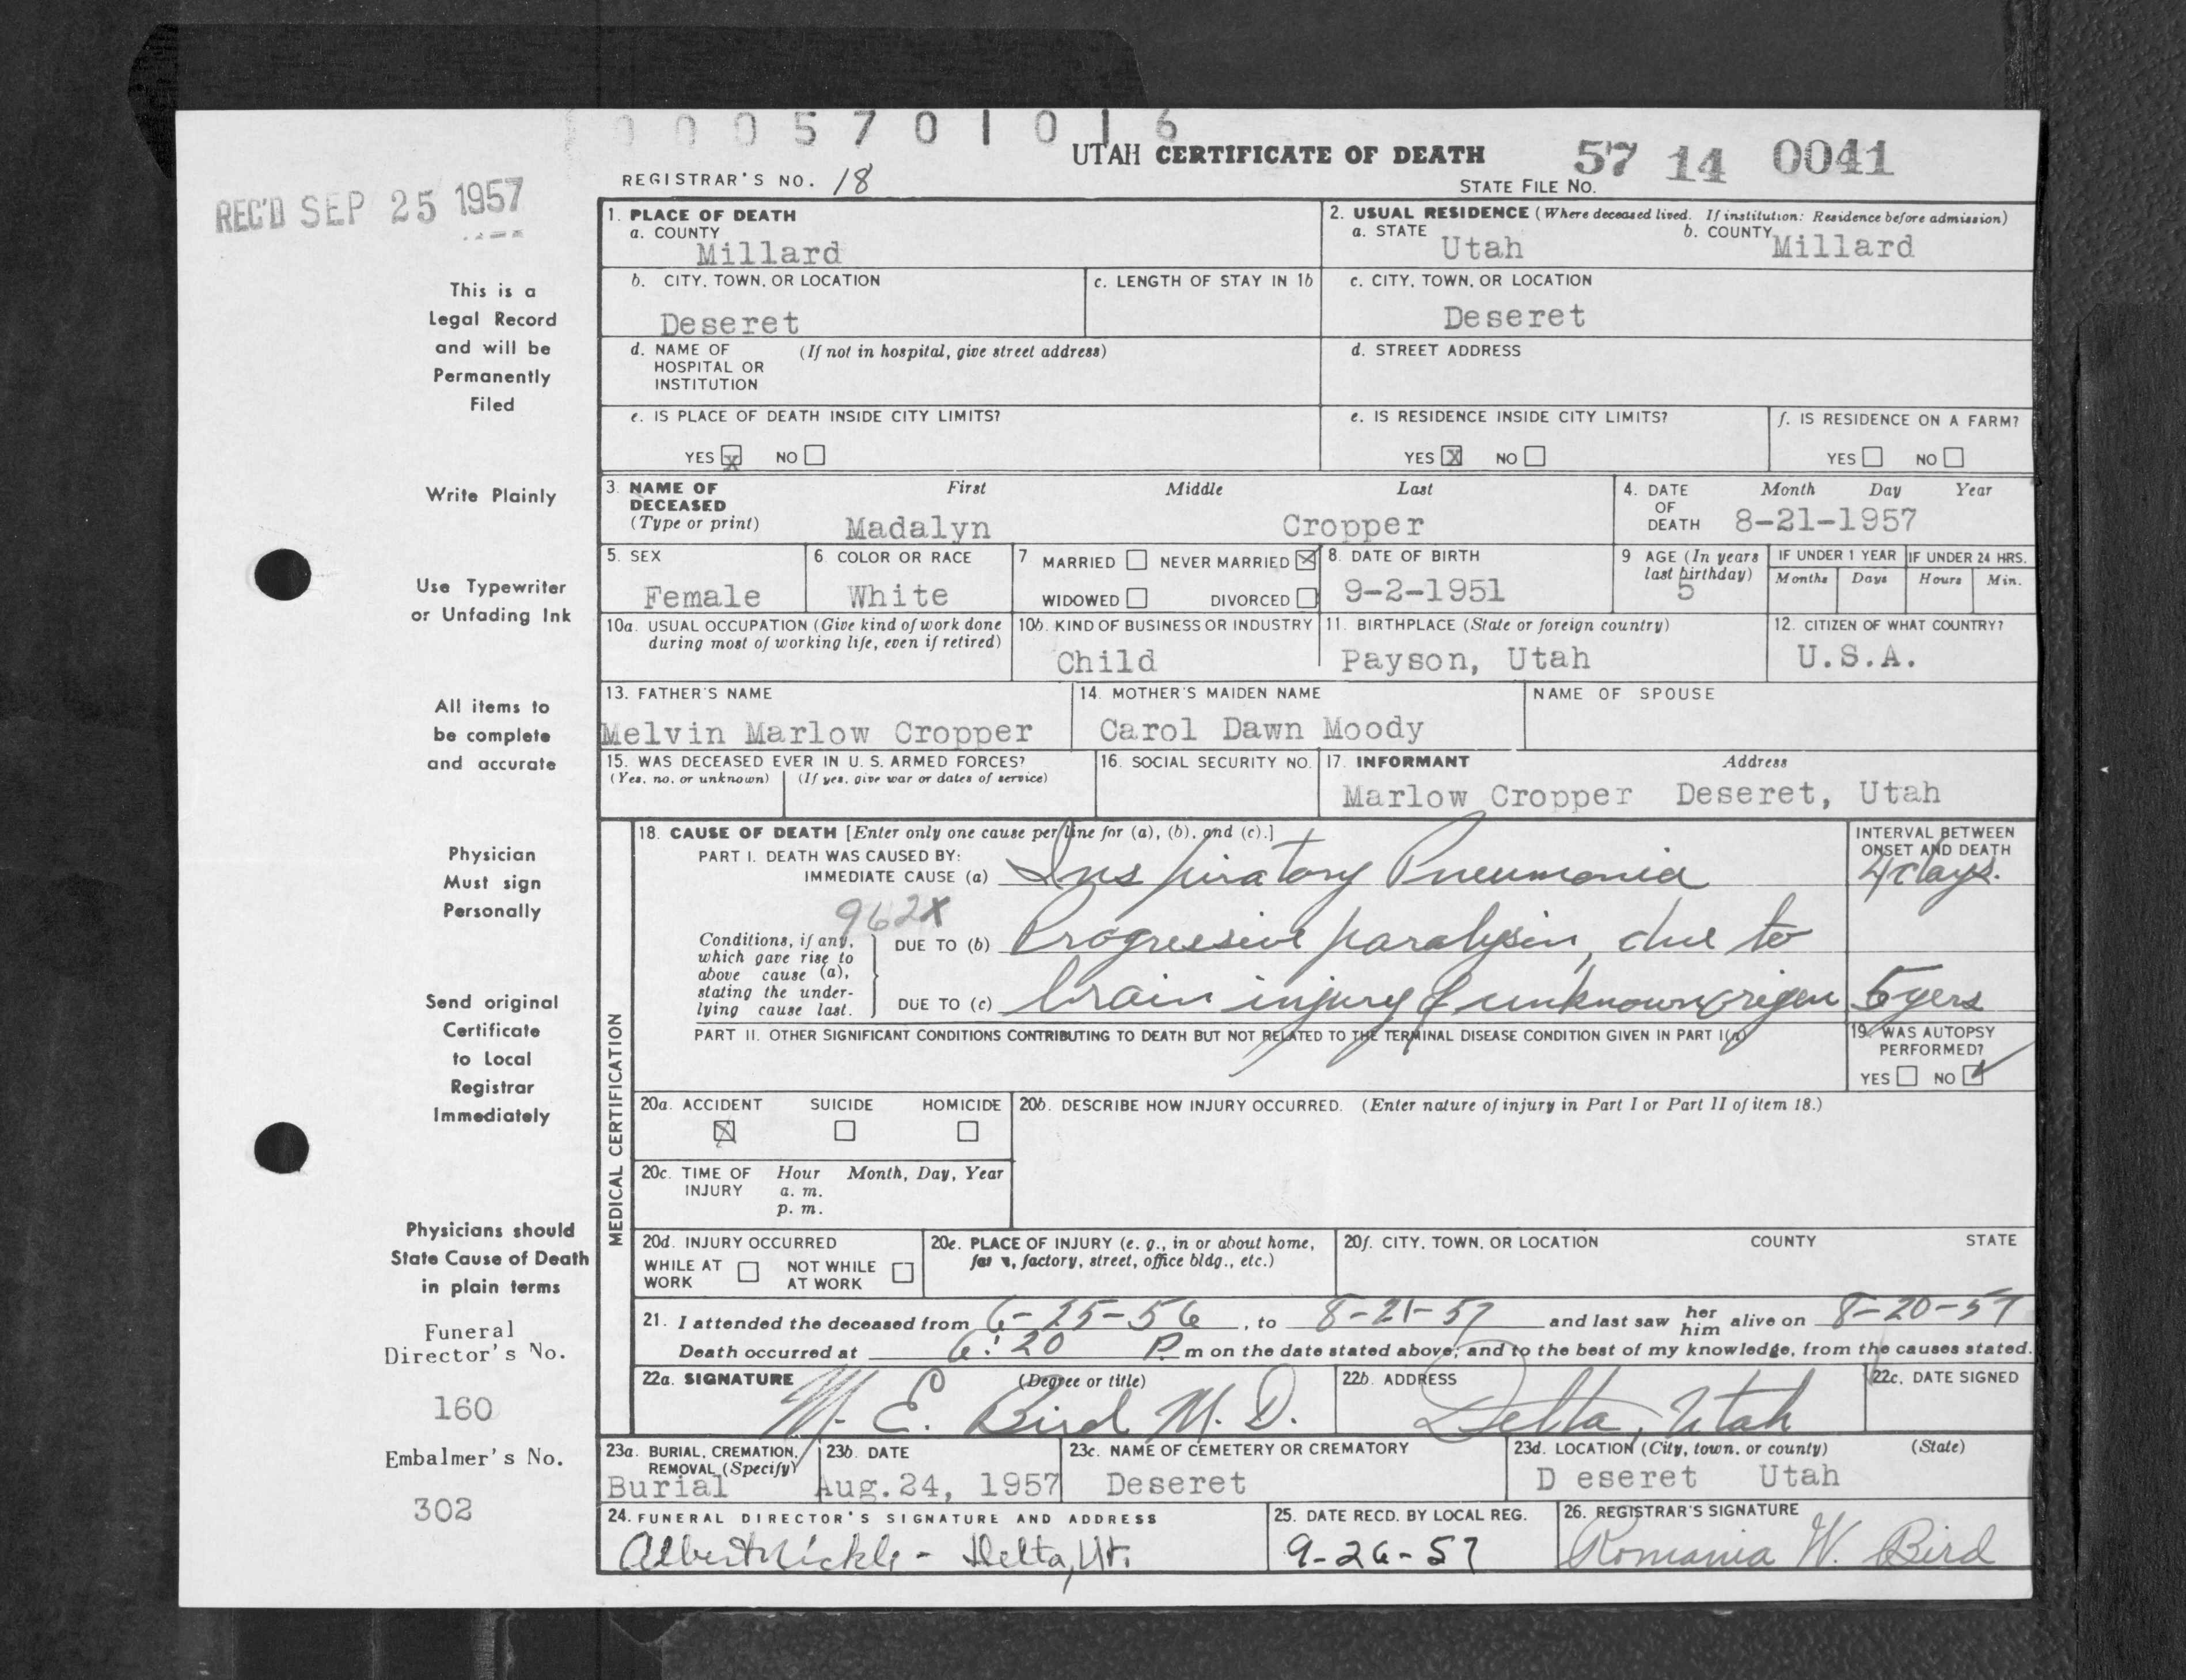 0005701016
UTAH CERTIFICATE OF DEATH
57 14 0041
REGISTRAR'S NO. 18
STATE FILE NO.
REC'D SEP 25 1957
This is a
Legal Record
and will be
Permanently
Filed
Write Plainly
Use Typewriter
or Unfading Ink
All items to
be complete
and accurate
Physician
Must sign
Personally
Send original
Certificate
to Local
Registrar
Immediately
Physicians should
State Cause of Death
in plain terms
Funeral
Director's No.
160
Embalmer's No.
302
1. PLACE OF DEATH
a. COUNTY
Millard
2. USUAL RESIDENCE (Where deceased lived. If institution: Residence before admission)
a. STATE Utah b. COUNTY Millard
b. CITY, TOWN, OR LOCATION
Deseret
c. LENGTH OF STAY IN 1b
c. CITY, TOWN, OR LOCATION
Deseret
d. NAME OF (If not in hospital, give street address)
HOSPITAL OR
INSTITUTION
d. STREET ADDRESS
e. IS PLACE OF DEATH INSIDE CITY LIMITS?
YES X NO
e. IS RESIDENCE INSIDE CITY LIMITS?
YES X NO
f. IS RESIDENCE ON A FARM?
YES NO
3. NAME OF DECEASED (Type or print) First Middle Last
Madalyn Cropper
4. DATE OF DEATH Month Day Year
8-21-1957
5. SEX
Female
6. COLOR OR RACE
White
7 MARRIED NEVER MARRIED X
WIDOWED DIVORCED
8. DATE OF BIRTH
9-2-1951
9 AGE (In years last birthday)
5
IF UNDER 1 YEAR
Months Days
IF UNDER 24 HRS.
Hours Min.
10a. USUAL OCCUPATION (Give kind of work done
during most of working life, even if retired)
10b. KIND OF BUSINESS OR INDUSTRY
Child
11. BIRTHPLACE (State or foreign country)
Payson, Utah
12. CITIZEN OF WHAT COUNTRY?
U.S.A.
13. FATHER'S NAME
Melvin Marlow Cropper
14. MOTHER'S MAIDEN NAME
Carol Dawn Moody
NAME OF SPOUSE
15. WAS DECEASED EVER IN U. S. ARMED FORCES?
(Yes, no, or unknown) (If yes, give war or dates of service)
16. SOCIAL SECURITY NO.
17. INFORMANT Address
Marlow Cropper Deseret, Utah
MEDICAL CERTIFICATION
18. CAUSE OF DEATH [Enter only one cause per line for (a), (b), and (c).]
PART I. DEATH WAS CAUSED BY:
IMMEDIATE CAUSE (a) Inspiratory Pneumonia
INTERVAL BETWEEN
ONSET AND DEATH
4 days.
962X
Conditions, if any,
which gave rise to
above cause (a),
stating the under-
lying cause last.
DUE TO (b) Progressive paralysis, due to
DUE TO (c) brain injury of unknown origen 5 yers
PART II. OTHER SIGNIFICANT CONDITIONS CONTRIBUTING TO DEATH BUT NOT RELATED TO THE TERMINAL DISEASE CONDITION GIVEN IN PART I(a)
19. WAS AUTOPSY
PERFORMED?
YES NO ✓
20a. ACCIDENT SUICIDE HOMICIDE
X
20b. DESCRIBE HOW INJURY OCCURRED. (Enter nature of injury in Part I or Part II of item 18.)
20c. TIME OF INJURY Hour Month, Day, Year
a. m.
p. m.
20d. INJURY OCCURRED
WHILE AT WORK NOT WHILE AT WORK
20e. PLACE OF INJURY (e. g., in or about home,
farm, factory, street, office bldg., etc.)
20f. CITY, TOWN, OR LOCATION COUNTY STATE
21. I attended the deceased from 6-25-56, to 8-21-57 and last saw her him alive on 8-20-57
Death occurred at 6:20 P. m on the date stated above; and to the best of my knowledge, from the causes stated.
22a. SIGNATURE (Degree or title)
M. E. Bird M. D.
22b. ADDRESS
Delta, Utah
22c. DATE SIGNED
23a. BURIAL, CREMATION,
REMOVAL (Specify)
Burial
23b. DATE
Aug.24, 1957
23c. NAME OF CEMETERY OR CREMATORY
Deseret
23d. LOCATION (City, town, or county) (State)
D eseret Utah
24. FUNERAL DIRECTOR'S SIGNATURE AND ADDRESS
Albert Nickle - Delta, Ut.
25. DATE RECD. BY LOCAL REG.
9-26-57
26. REGISTRAR'S SIGNATURE
Romania W. Bird